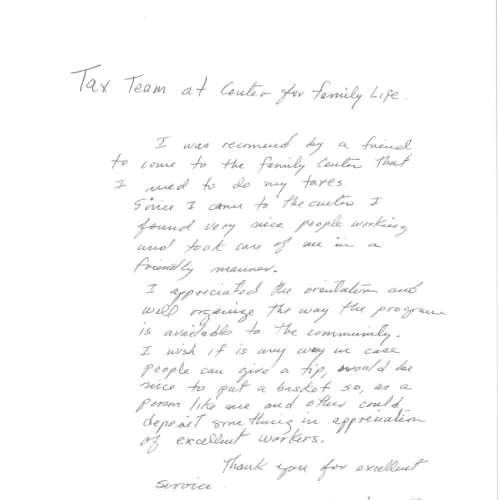 Tax Team at Center for Family Life.
I was recomend by a friend
to come to the family Center that
I used to do my taxes.
Since I came to the center I
found very nice people working
and took care of me in a
friendly manner.
I appreciated the orientation and
well organize the way the programe
is available to the community.
I wish if is any way in case
people can give a tip, would be
nice to put a basket so, as a
person like me and other could
deposit something in appreciation
of excellent workers.
Thank you for excellent
service